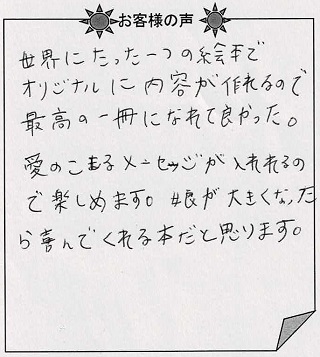 お客様の声
世界にたった一つの絵本で
オリジナルに内容が作れるので
最高の一冊になれて良かった。
愛のこまるメーセッジが入れれるの
で楽しめます。娘が大きくなった
ら喜んでくれる本だと思います。